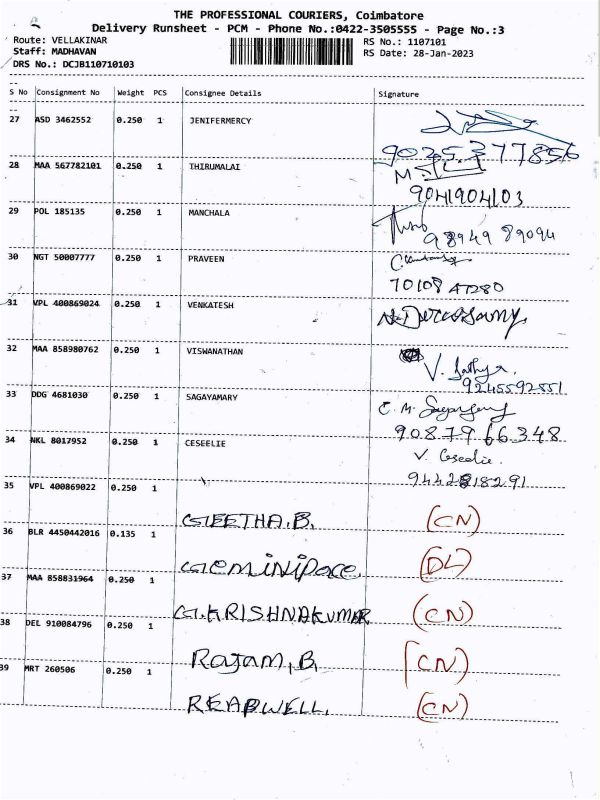 THE PROFESSIONAL COURIERS, Coimbatore
Delivery Runsheet - PCM - Phone No.:0422-3505555 - Page No.:3
Route: VELLAKINAR RS No.: 1107101
Staff: MADHAVAN RS Date: 28-Jan-2023
DRS No.: DCJB110710103
S No Consignment No Weight PCS Consignee Details Signature
27 ASD 3462552 0.250 1 JENIFERMERCY
9025377856
28 MAA 567782101 0.250 1 THIRUMALAI
9041904103
29 POL 185135 0.250 1 MANCHALA
98949 89094
30 NGT 50007777 0.250 1 PRAVEEN
31 VPL 400869024 0.250 1 VENKATESH
32 MAA 858980762 0.250 1 VISWANATHAN
V. Sathya.
9245592551
33 DDG 4681030 0.250 1 SAGAYAMARY
90879 66348
34 NKL 8017952 0.250 1 CESEELIE
V. Ceseelie.
35 VPL 400869022 0.250 1
GEETHA.B. (CN)
36 BLR 4450442016 0.135 1
(DL)
37 MAA 858831964 0.250 1
G.KRISHNAKUMAR (CN)
38 DEL 910084796 0.250 1
Rajam,B, (CN)
39 MRT 260506 0.250 1
REABWELL. (CN)